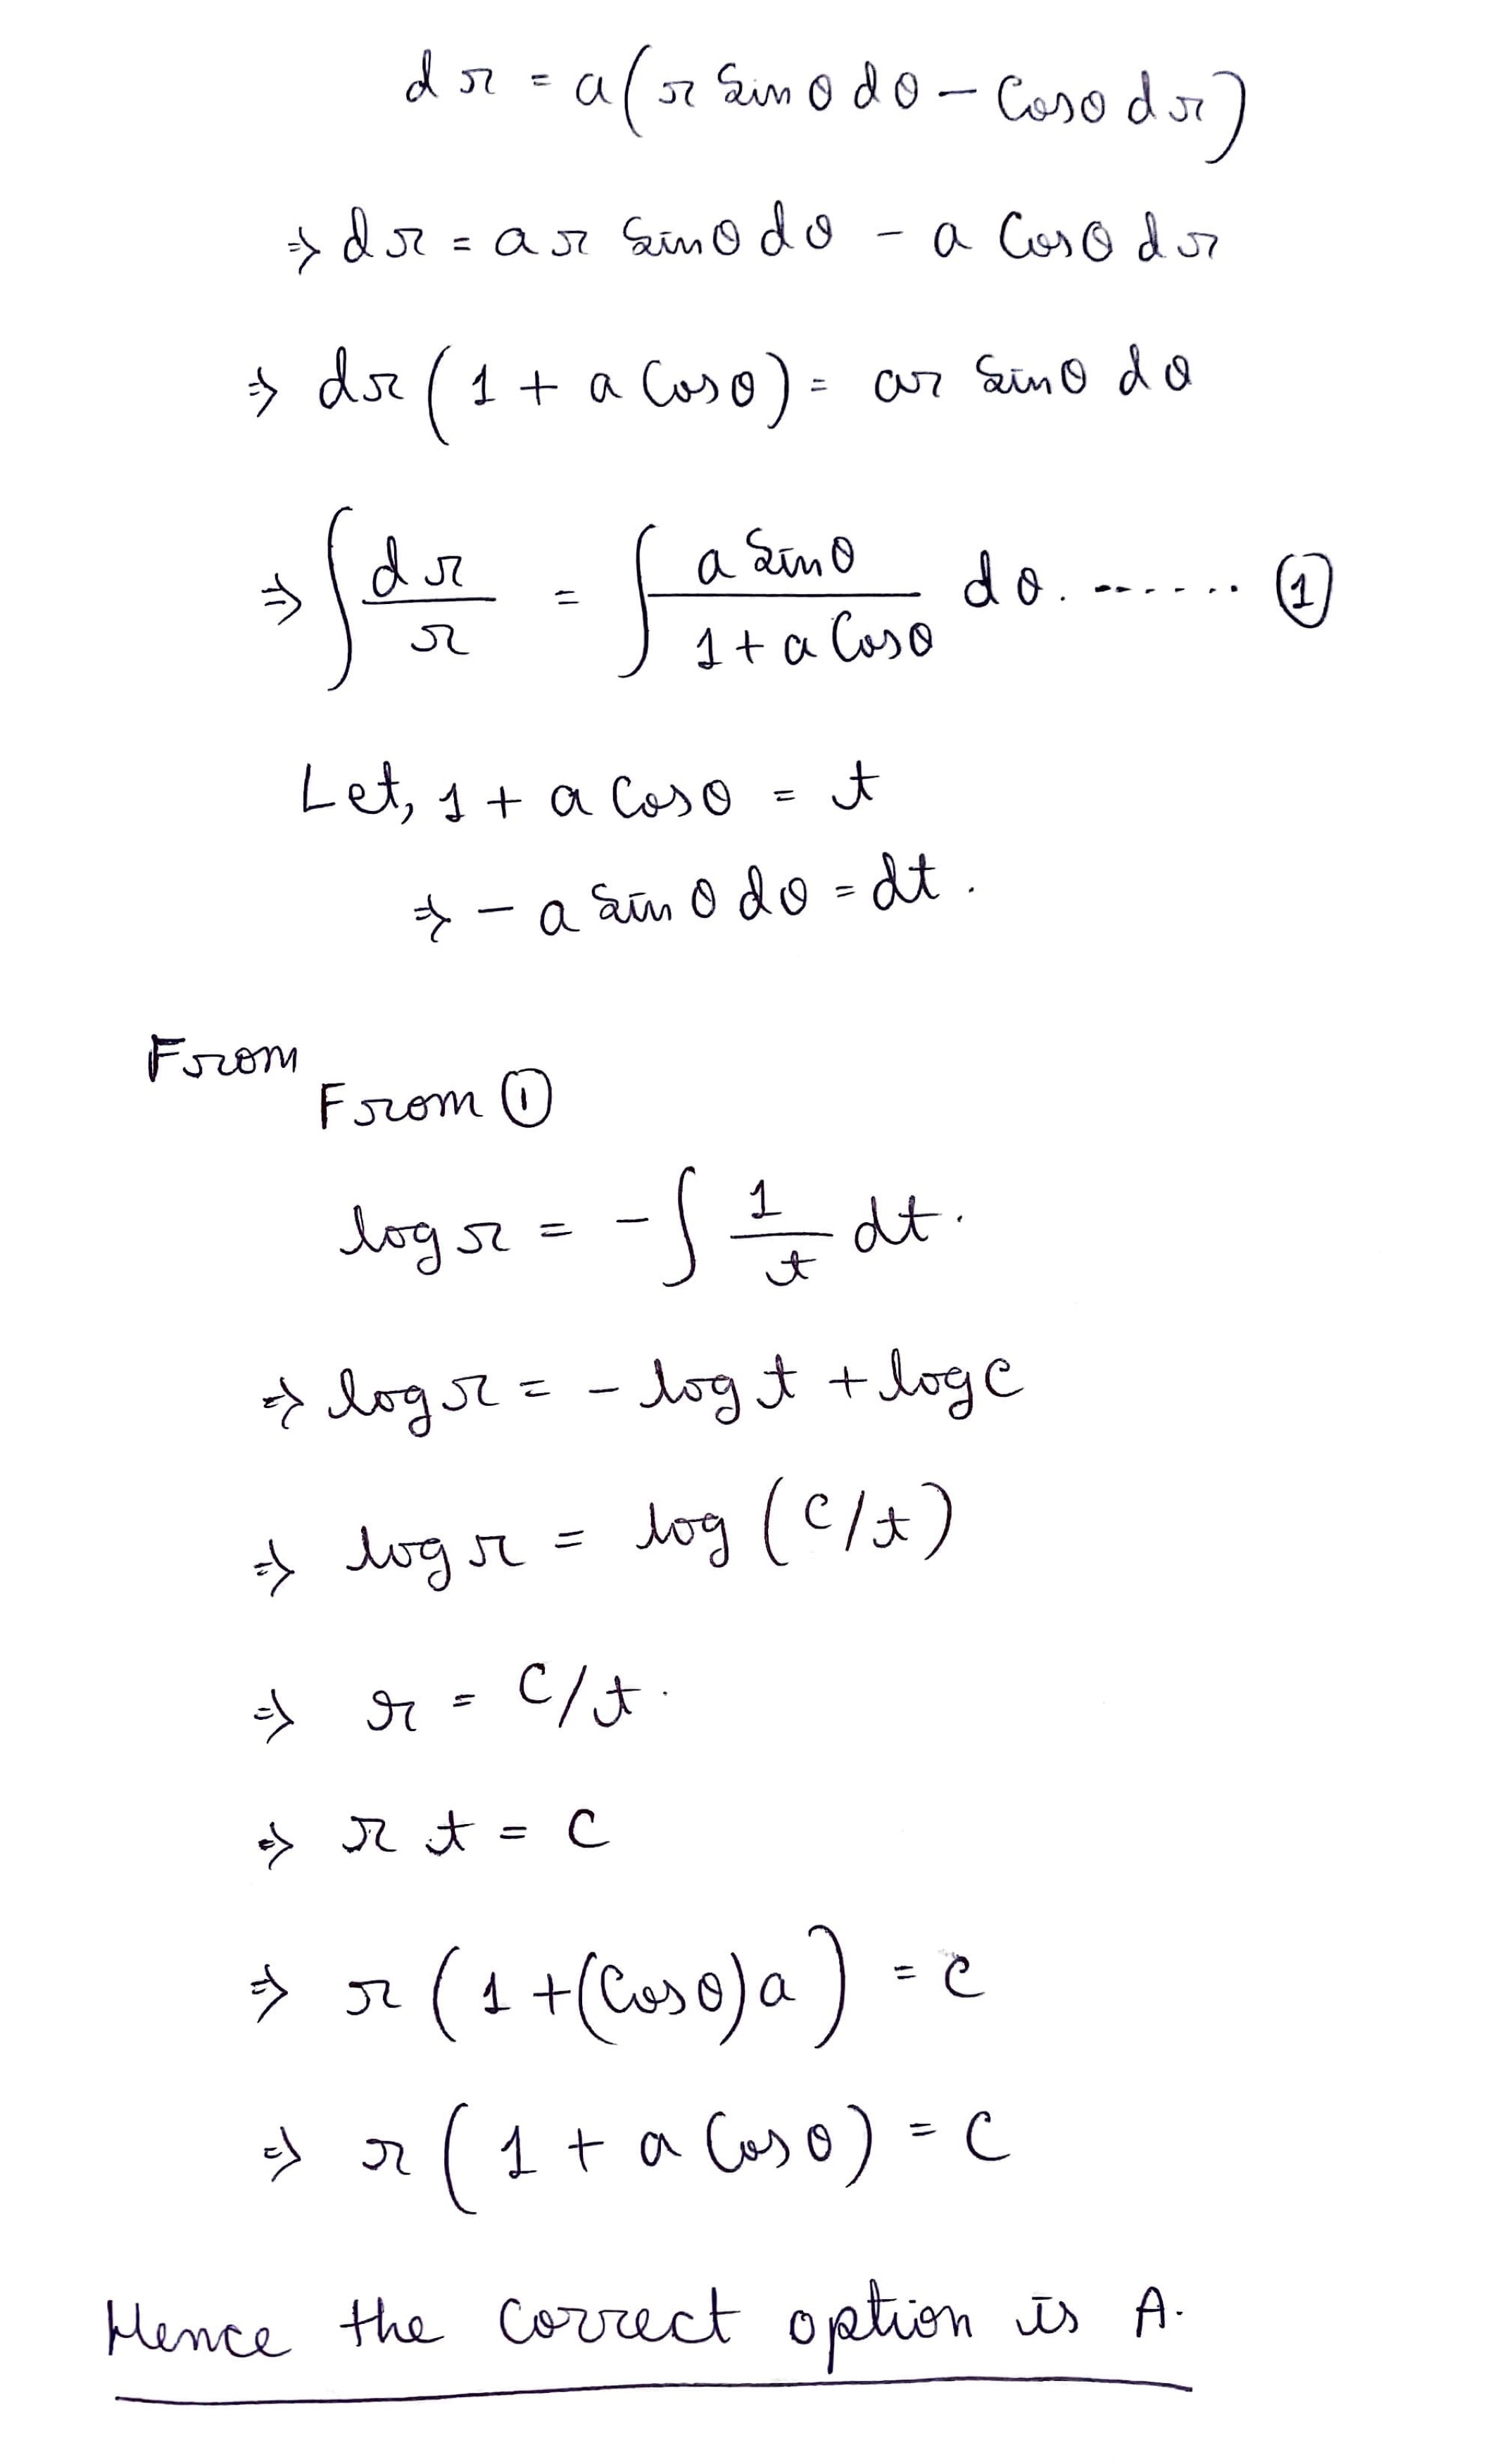 dr = a(r Sinθdθ - Cosθdr)
⇒ dr = ar Sinθdθ - a Cosθdr
⇒ dr(1 + a Cosθ) = ar Sinθ dθ
⇒ ∫ dr/r = ∫ a Sinθ/1+a Cosθ dθ. ....... ①
Let, 1 + a Cosθ = t
⇒ - a Sinθdθ = dt.
From
From ①
log r = - ∫ 1/t dt.
⇒ log r = - log t + log c
⇒ log r = log (c/t)
⇒ r = c/t.
⇒ r t = c
⇒ r (1 + (Cosθ)a) = c
⇒ r (1 + a Cosθ) = c
Hence the correct option is A.